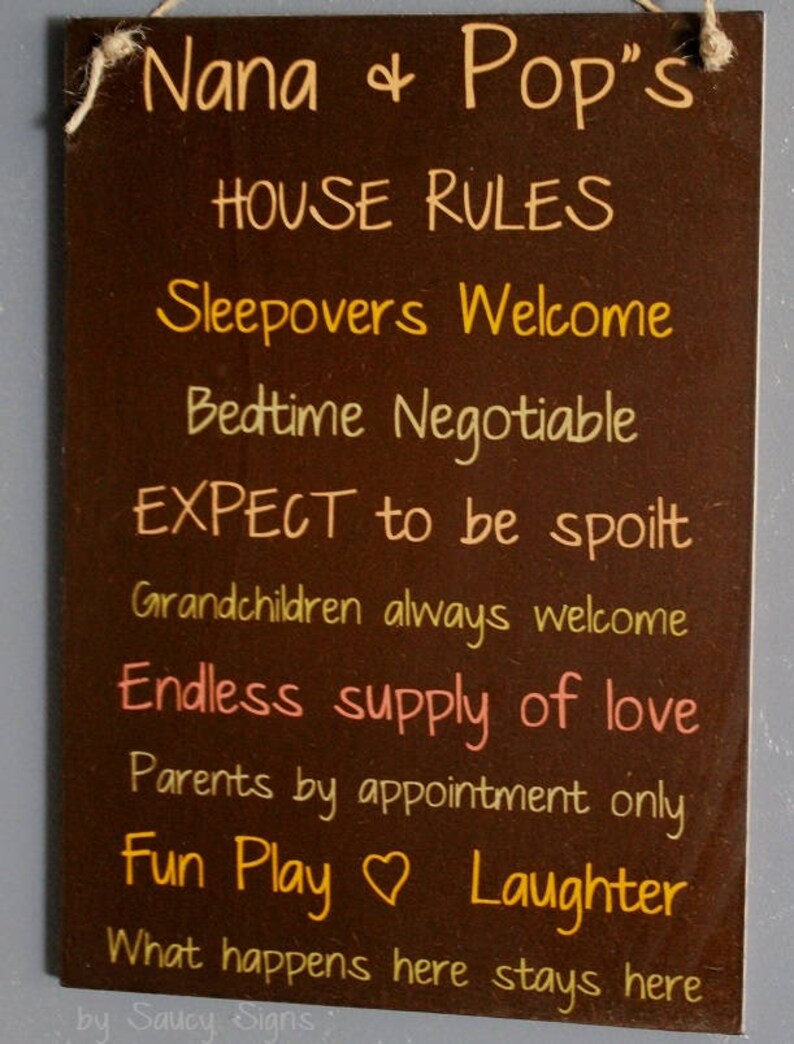 Nana & Pop"s
HOUSE RULES
Sleepovers Welcome
Bedtime Negotiable
EXPECT to be spoilt
Grandchildren always welcome
Endless supply of love
Parents by appointment only
Fun Play ♡ Laughter
What happens here stays here
by Saucy Signs